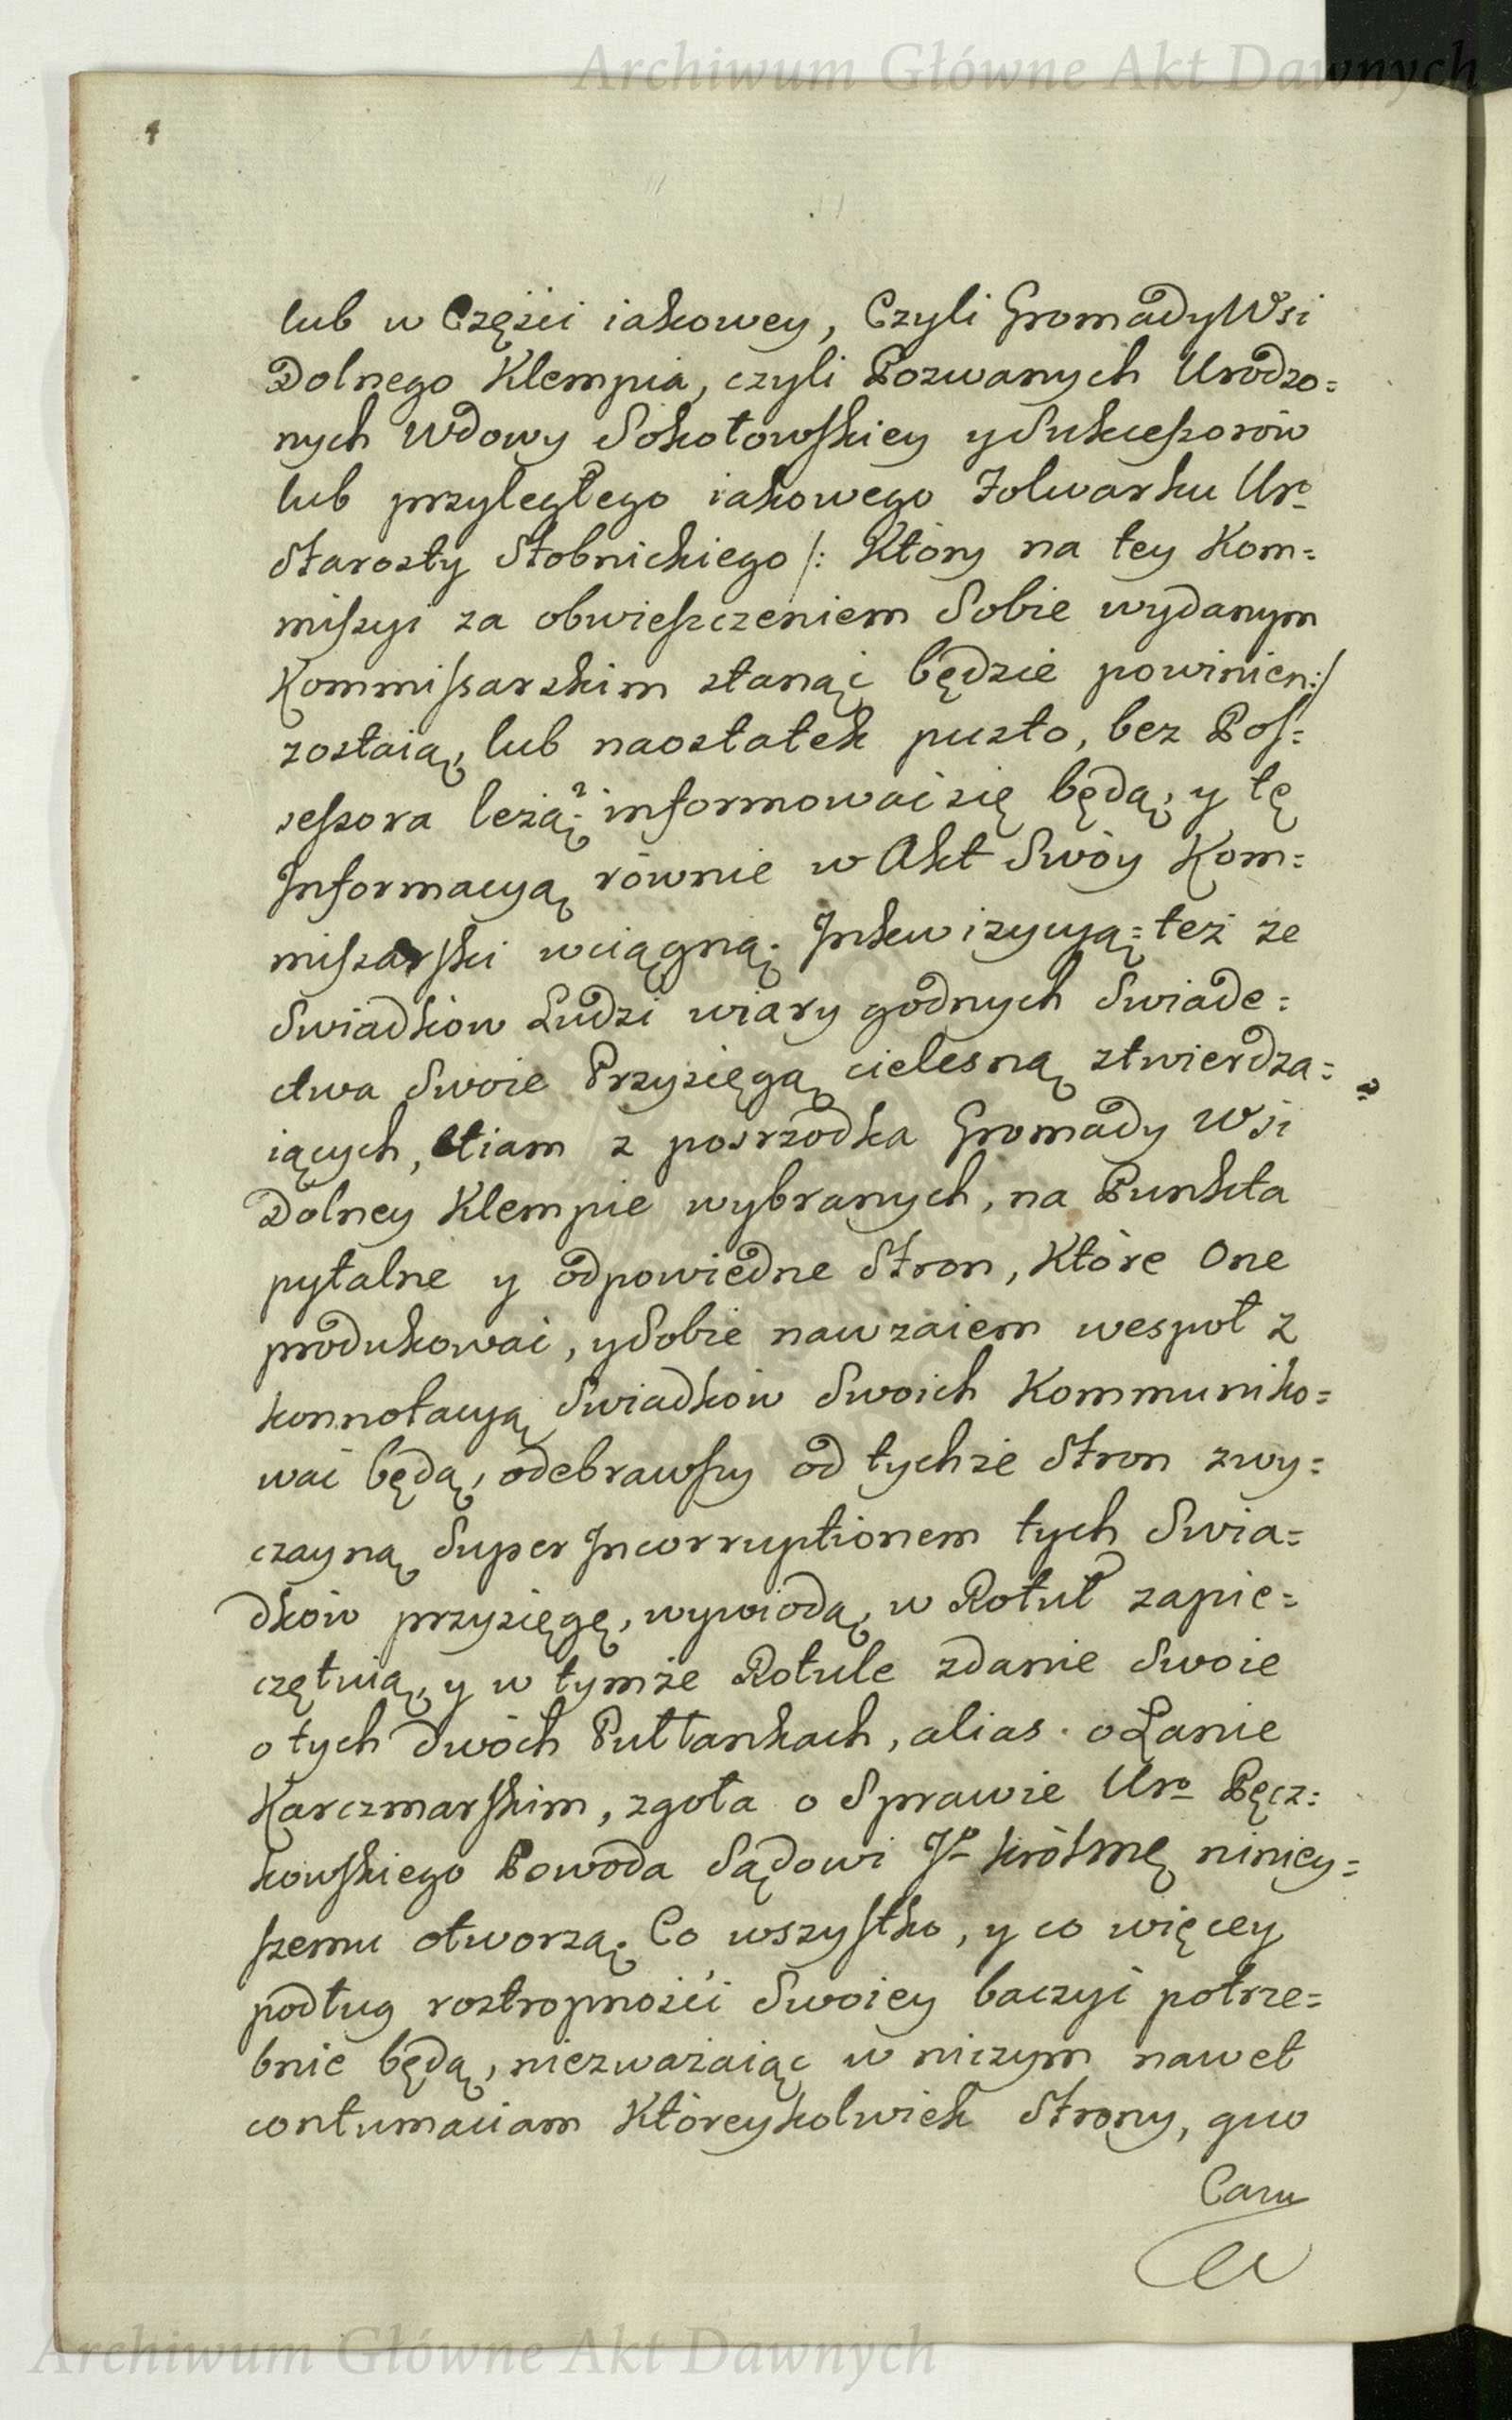 Archiwum Główne Akt Dawnych
4
lub w Częsci iakowey, Czyli Gromady Wsi
Dolnego Klempia, czyli Pozwanych Urodzo=
nych Wdowy Sokołowskiey y Sukcessorów
lub przyległego iakowego Folwarku Uro
Starosty Stobnickiego /: Który na tey Kom=
missyi za obwieszczeniem Sobie wydanym
Kommissarskim stanąć będzie powinien :/
zostaią, lub naostatek pusto, bez Pos=
sessora leżą? informować się będą, y tę
Informacyą równie w Akt Swóy Kom=
missarski wciągną. Inkwizycyą = też ze
Swiadkow Ludzi wiary godnych Swiade=
ctwa Swoie Przysięgą cielesną ztwierdza=
iących, etiam z posrzodka Gromady Wsi
Dolney Klempie wybranych, na Punkta
pytalne y odpowiedne Stron, Które One
produkować, y Sobie nawzaiem wespoł z
konnotacyą Swiadków Swoich Kommuniko=
wać będą, odebrawszy od tychże Stron zwy=
czayną Super Incorruptionem tych Swia=
dków przysięgę, wywiodą, w Rotuł zapie=
czętuią, y w tymże Rotule zdanie Swoie
o tych dwóch Pułłankach, alias o Łanie
Karczmarskim, zgoła o Sprawie Uro Pęcz=
kowskiego Powoda Sądowi JKrólmę niniey=
szemu otworzą. Co wszystko, y co więcey
podług roztropności Swoiey baczyć potrze=
bnie będą, niezważaiąc w niczym nawet
contumaciam Któreykolwiek Strony, quo
Casu
Archiwum Główne Akt Dawnych